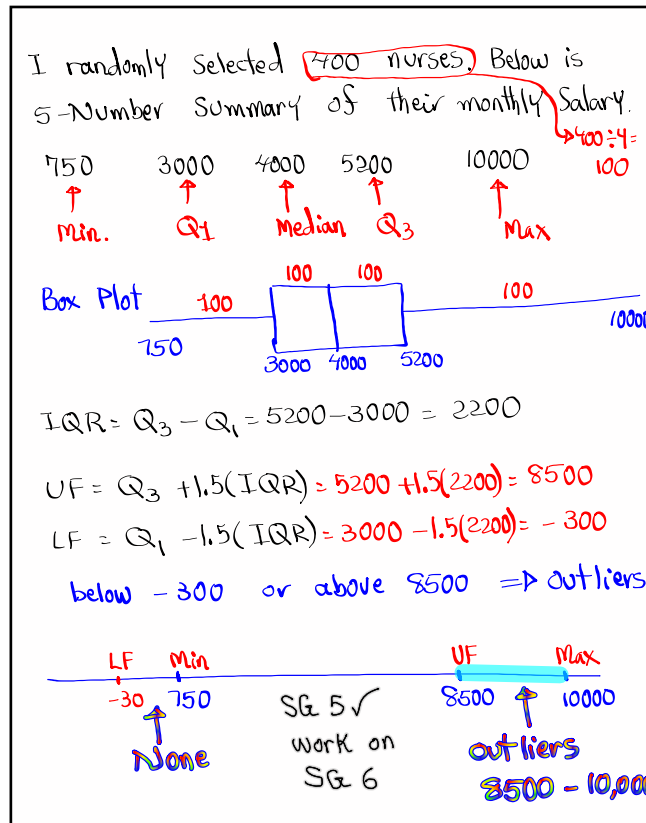 I randomly selected 400 nurses. Below is
5-Number Summary of their monthly Salary.
400÷4=
100
750 3000 4000 5200 10000
Min. Q1 Median Q3 Max
100 100
Box Plot 100 100
750 3000 4000 5200 10000
IQR = Q3 - Q1 = 5200-3000 = 2200
UF = Q3 +1.5(IQR) = 5200 +1.5(2200) = 8500
LF = Q1 -1.5(IQR) = 3000 -1.5(2200) = -300
below -300 or above 8500 => outliers
LF Min UF Max
-30 750 8500 10000
None SG 5✓ outliers
work on 8500 - 10,000
SG 6